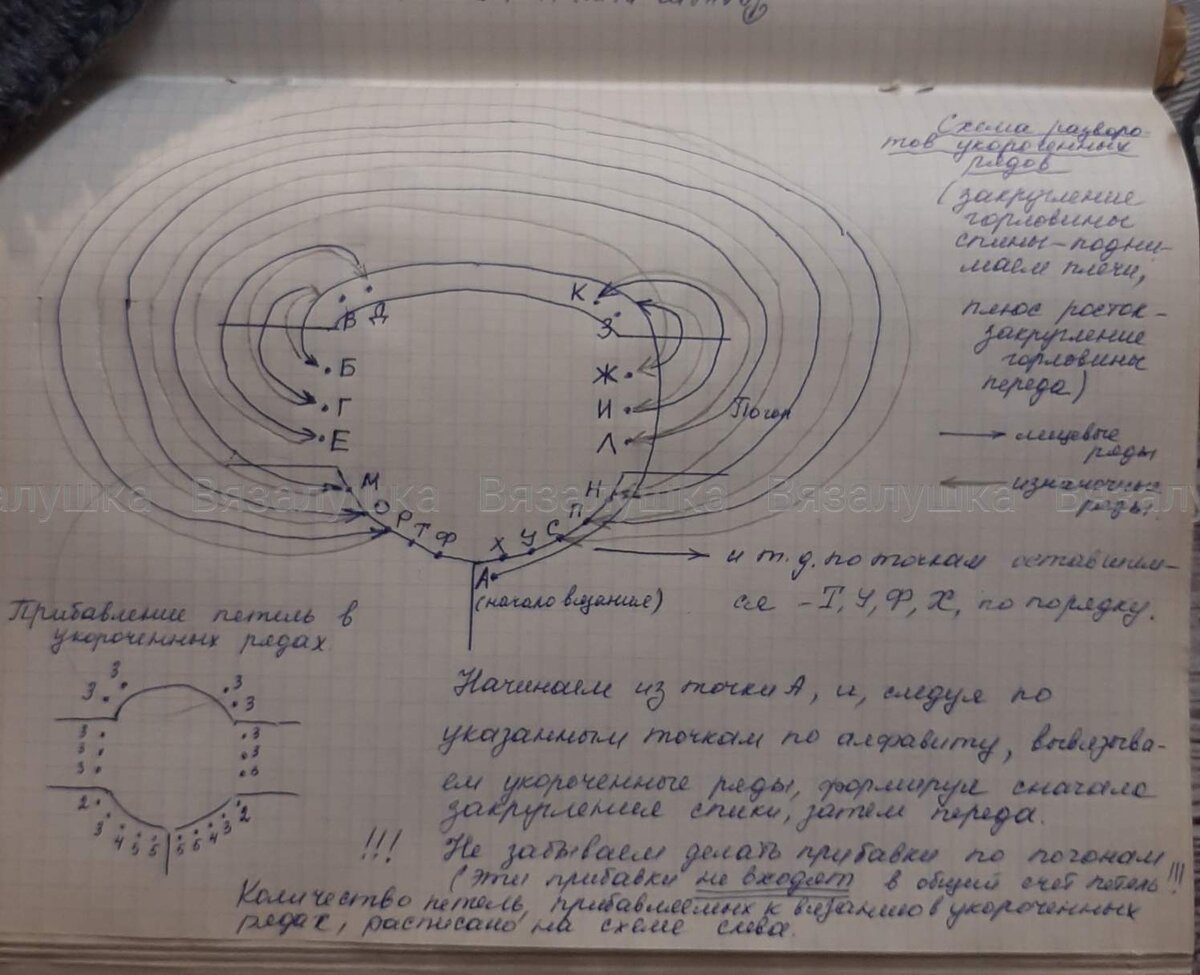 Схема разворо-
тов укороченных
рядов
(закругление
горловины
спины-подни-
маем плечи,
плюс росток-
закругление
горловины
переда)
лицевые
ряды
изнаночные
ряды.
К
В Д
З
Б
Ж
Г
И
Погон
Е
Л
М
Н
Вязалушка Вязалушка Вязалушка
О
П
Р
С
Т
У
Ф
Х
А
(начало вязания)
и т.д. по точкам оставшим-
ся - Т, У, Ф, Х, по порядку.
Прибавление петель в
укороченных рядах
3 3
3 3
3 3
3 3
3 3
2 2
3 4 5 5 5 5 4 3
Начинаем из точки А, и, следуя по
указанным точкам по алфавиту, вывязыва-
ем укороченные ряды, формируя сначала
закругления спинки, затем переда.
!!! Не забываем делать прибавки по погонам
(эти прибавки не входят в общий счет петель !!!
Количество петель, прибавляемых к вязанию в укороченных
рядах, расписано на схеме слева.